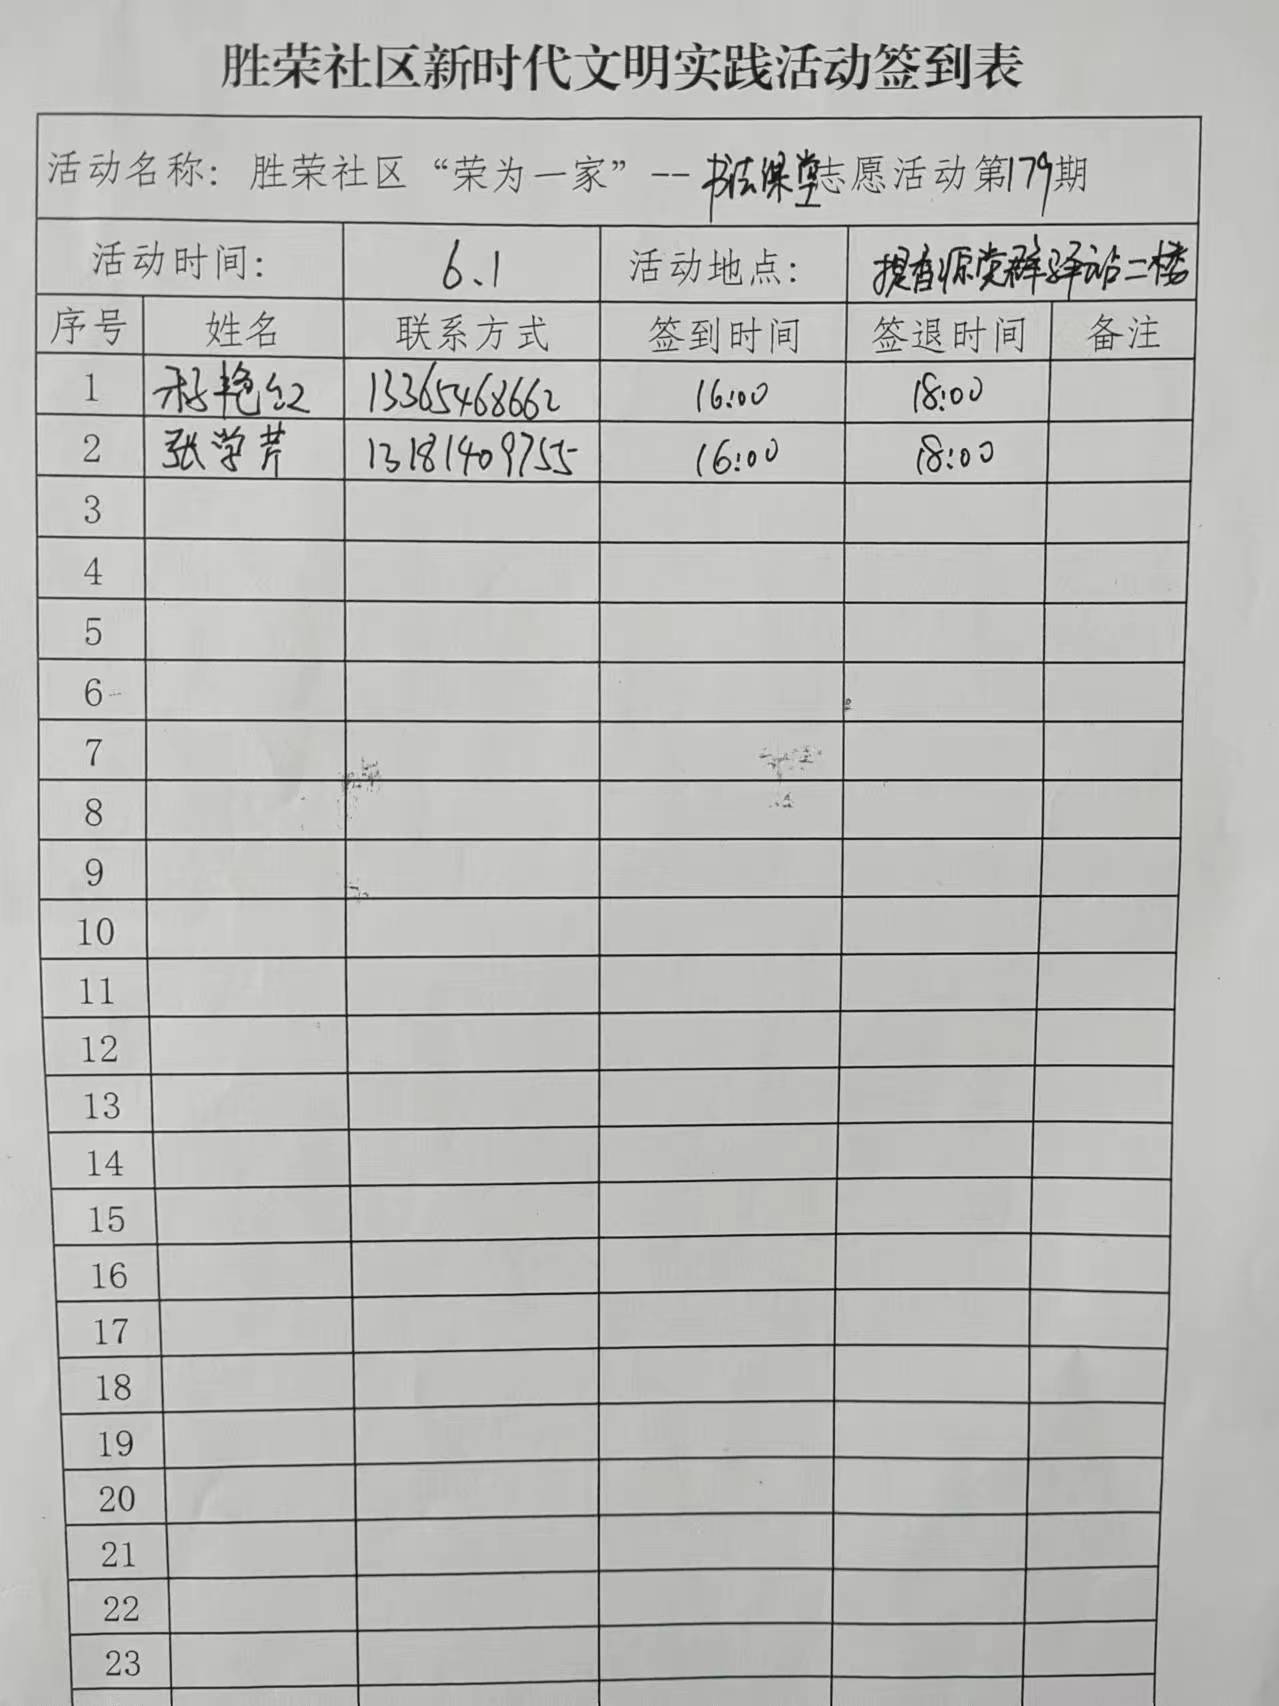 胜荣社区新时代文明实践活动签到表
活动名称：胜荣社区“荣为一家”--书法课堂志愿活动第179期
活动时间： 6.1 活动地点： 提香源党群驿站二楼
序号 姓名 联系方式 签到时间 签退时间 备注
1 艳红 13365468662 16:00 18:00
2 张学芹 13181409755 16:00 18:00
3
4
5
6
7
8
9
10
11
12
13
14
15
16
17
18
19
20
21
22
23